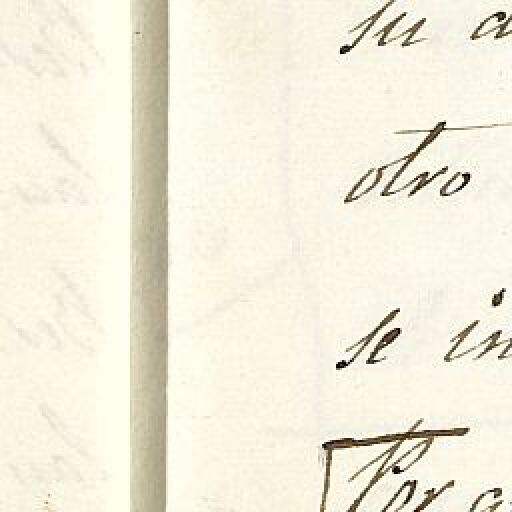 su
otro
se in
Por